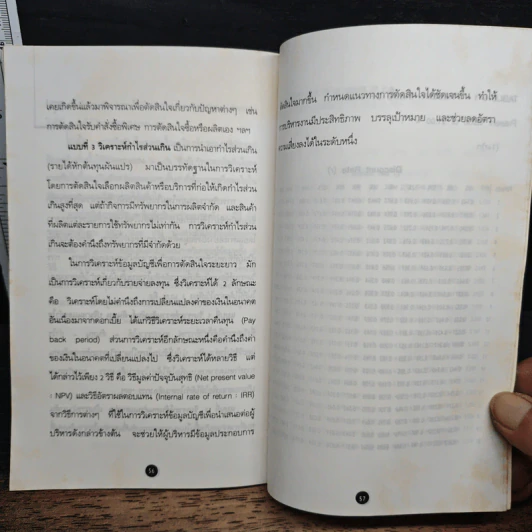 เคยเกิดขึ้นแล้วมาพิจารณาเพื่อตัดสินใจเกี่ยวกับปัญหาต่างๆ เช่น
การตัดสินใจรับคำสั่งซื้อพิเศษ การตัดสินใจซื้อหรือผลิตเอง ฯลฯ
แบบที่ 3 วิเคราะห์กำไรส่วนเกิน เป็นการนำเอากำไรส่วนเกิน
(รายได้หักต้นทุนผันแปร) มาเป็นบรรทัดฐานในการวิเคราะห์
โดยการตัดสินใจเลือกผลิตสินค้าหรือบริการที่ก่อให้เกิดกำไรส่วน
เกินสูงที่สุด แต่ถ้ากิจการมีทรัพยากรในการผลิตจำกัด และสินค้า
ที่ผลิตแต่ละรายการใช้ทรัพยากรไม่เท่ากัน การวิเคราะห์กำไรส่วน
เกินจะต้องคำนึงถึงทรัพยากรที่มีจำกัดด้วย
ในการวิเคราะห์ข้อมูลบัญชีเพื่อการตัดสินใจระยะยาว มัก
เป็นการวิเคราะห์เกี่ยวกับรายจ่ายลงทุน ซึ่งวิเคราะห์ได้ 2 ลักษณะ
คือ วิเคราะห์โดยไม่คำนึงถึงการเปลี่ยนแปลงค่าของเงินในอนาคต
อันเนื่องมาจากดอกเบี้ย ได้แก่วิธีวิเคราะห์ระยะเวลาคืนทุน (Pay
back period) ส่วนการวิเคราะห์อีกลักษณะหนึ่งคือคำนึงถึงค่า
ของเงินในอนาคตที่เปลี่ยนแปลงไป ซึ่งวิเคราะห์ได้หลายวิธี แต่
ได้กล่าวไว้เพียง 2 วิธี คือ วิธีมูลค่าปัจจุบันสุทธิ (Net present value
: NPV) และวิธีอัตราผลตอบแทน (Internal rate of return : IRR)
จากวิธีการต่างๆ ที่ใช้ในการวิเคราะห์ข้อมูลบัญชีเพื่อนำเสนอต่อผู้
บริหารดังกล่าวข้างต้น จะช่วยให้ผู้บริหารมีข้อมูลประกอบการ
56
ตัดสินใจมากขึ้น กำหนดแนวทางการตัดสินใจได้ชัดเจนขึ้น ทำให้
การบริหารงานมีประสิทธิภาพ บรรลุเป้าหมาย และช่วยลดอัตรา
ความเสี่ยงลงได้ในระดับหนึ่ง
57